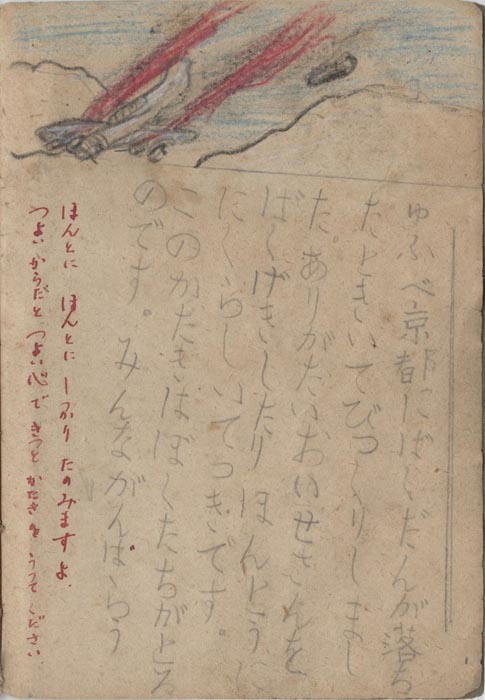 ゆふべ京都にばくだんが落ち
たときいてびっくりしまし
た。ありがたいおいせさんを
ばくげきしたり ほんとうに
にくらしいてっきです。
このかたきはぼくたちがとる
のです。みんながんばらう
ほんとに ほんとに しっかり たのみますよ.
つよいからだと つよい心で きっと かたきを うってください